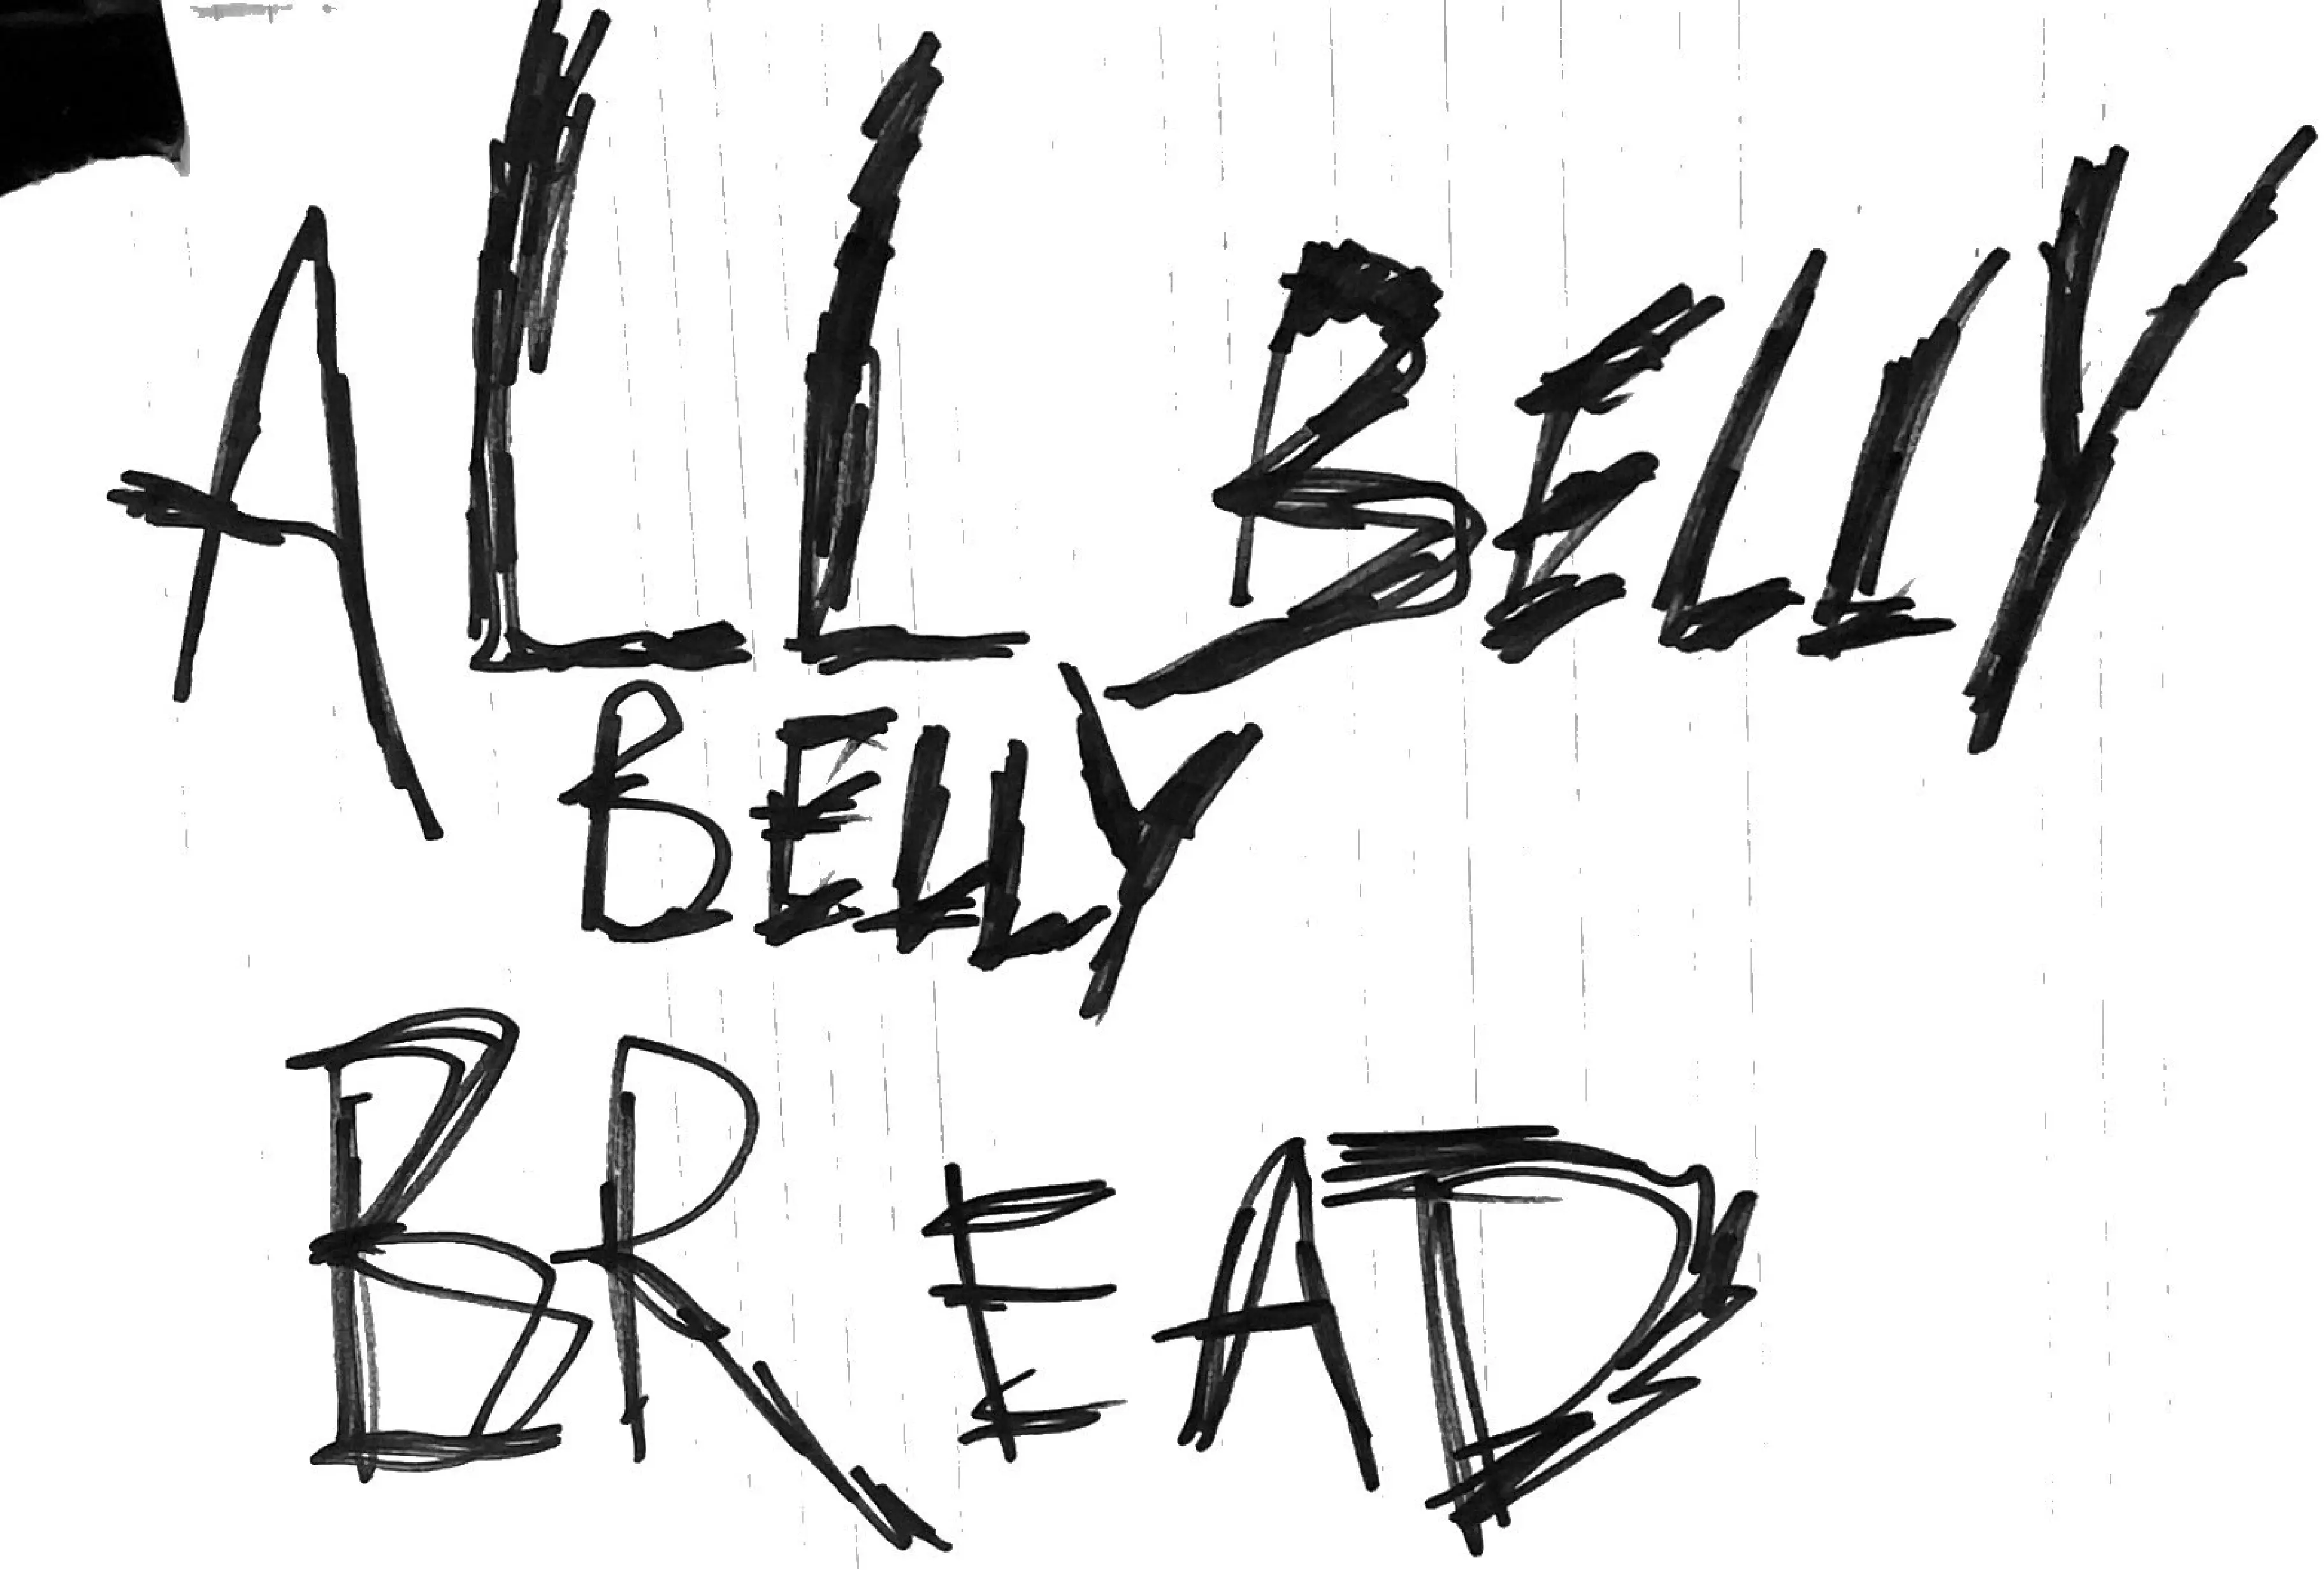 ALL BELLY
BELLY
BREAD